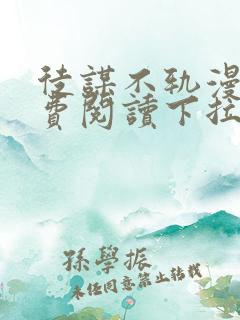 徒謀不軌漫
費閱讀下拉
孫學振
未經同意禁止轉載